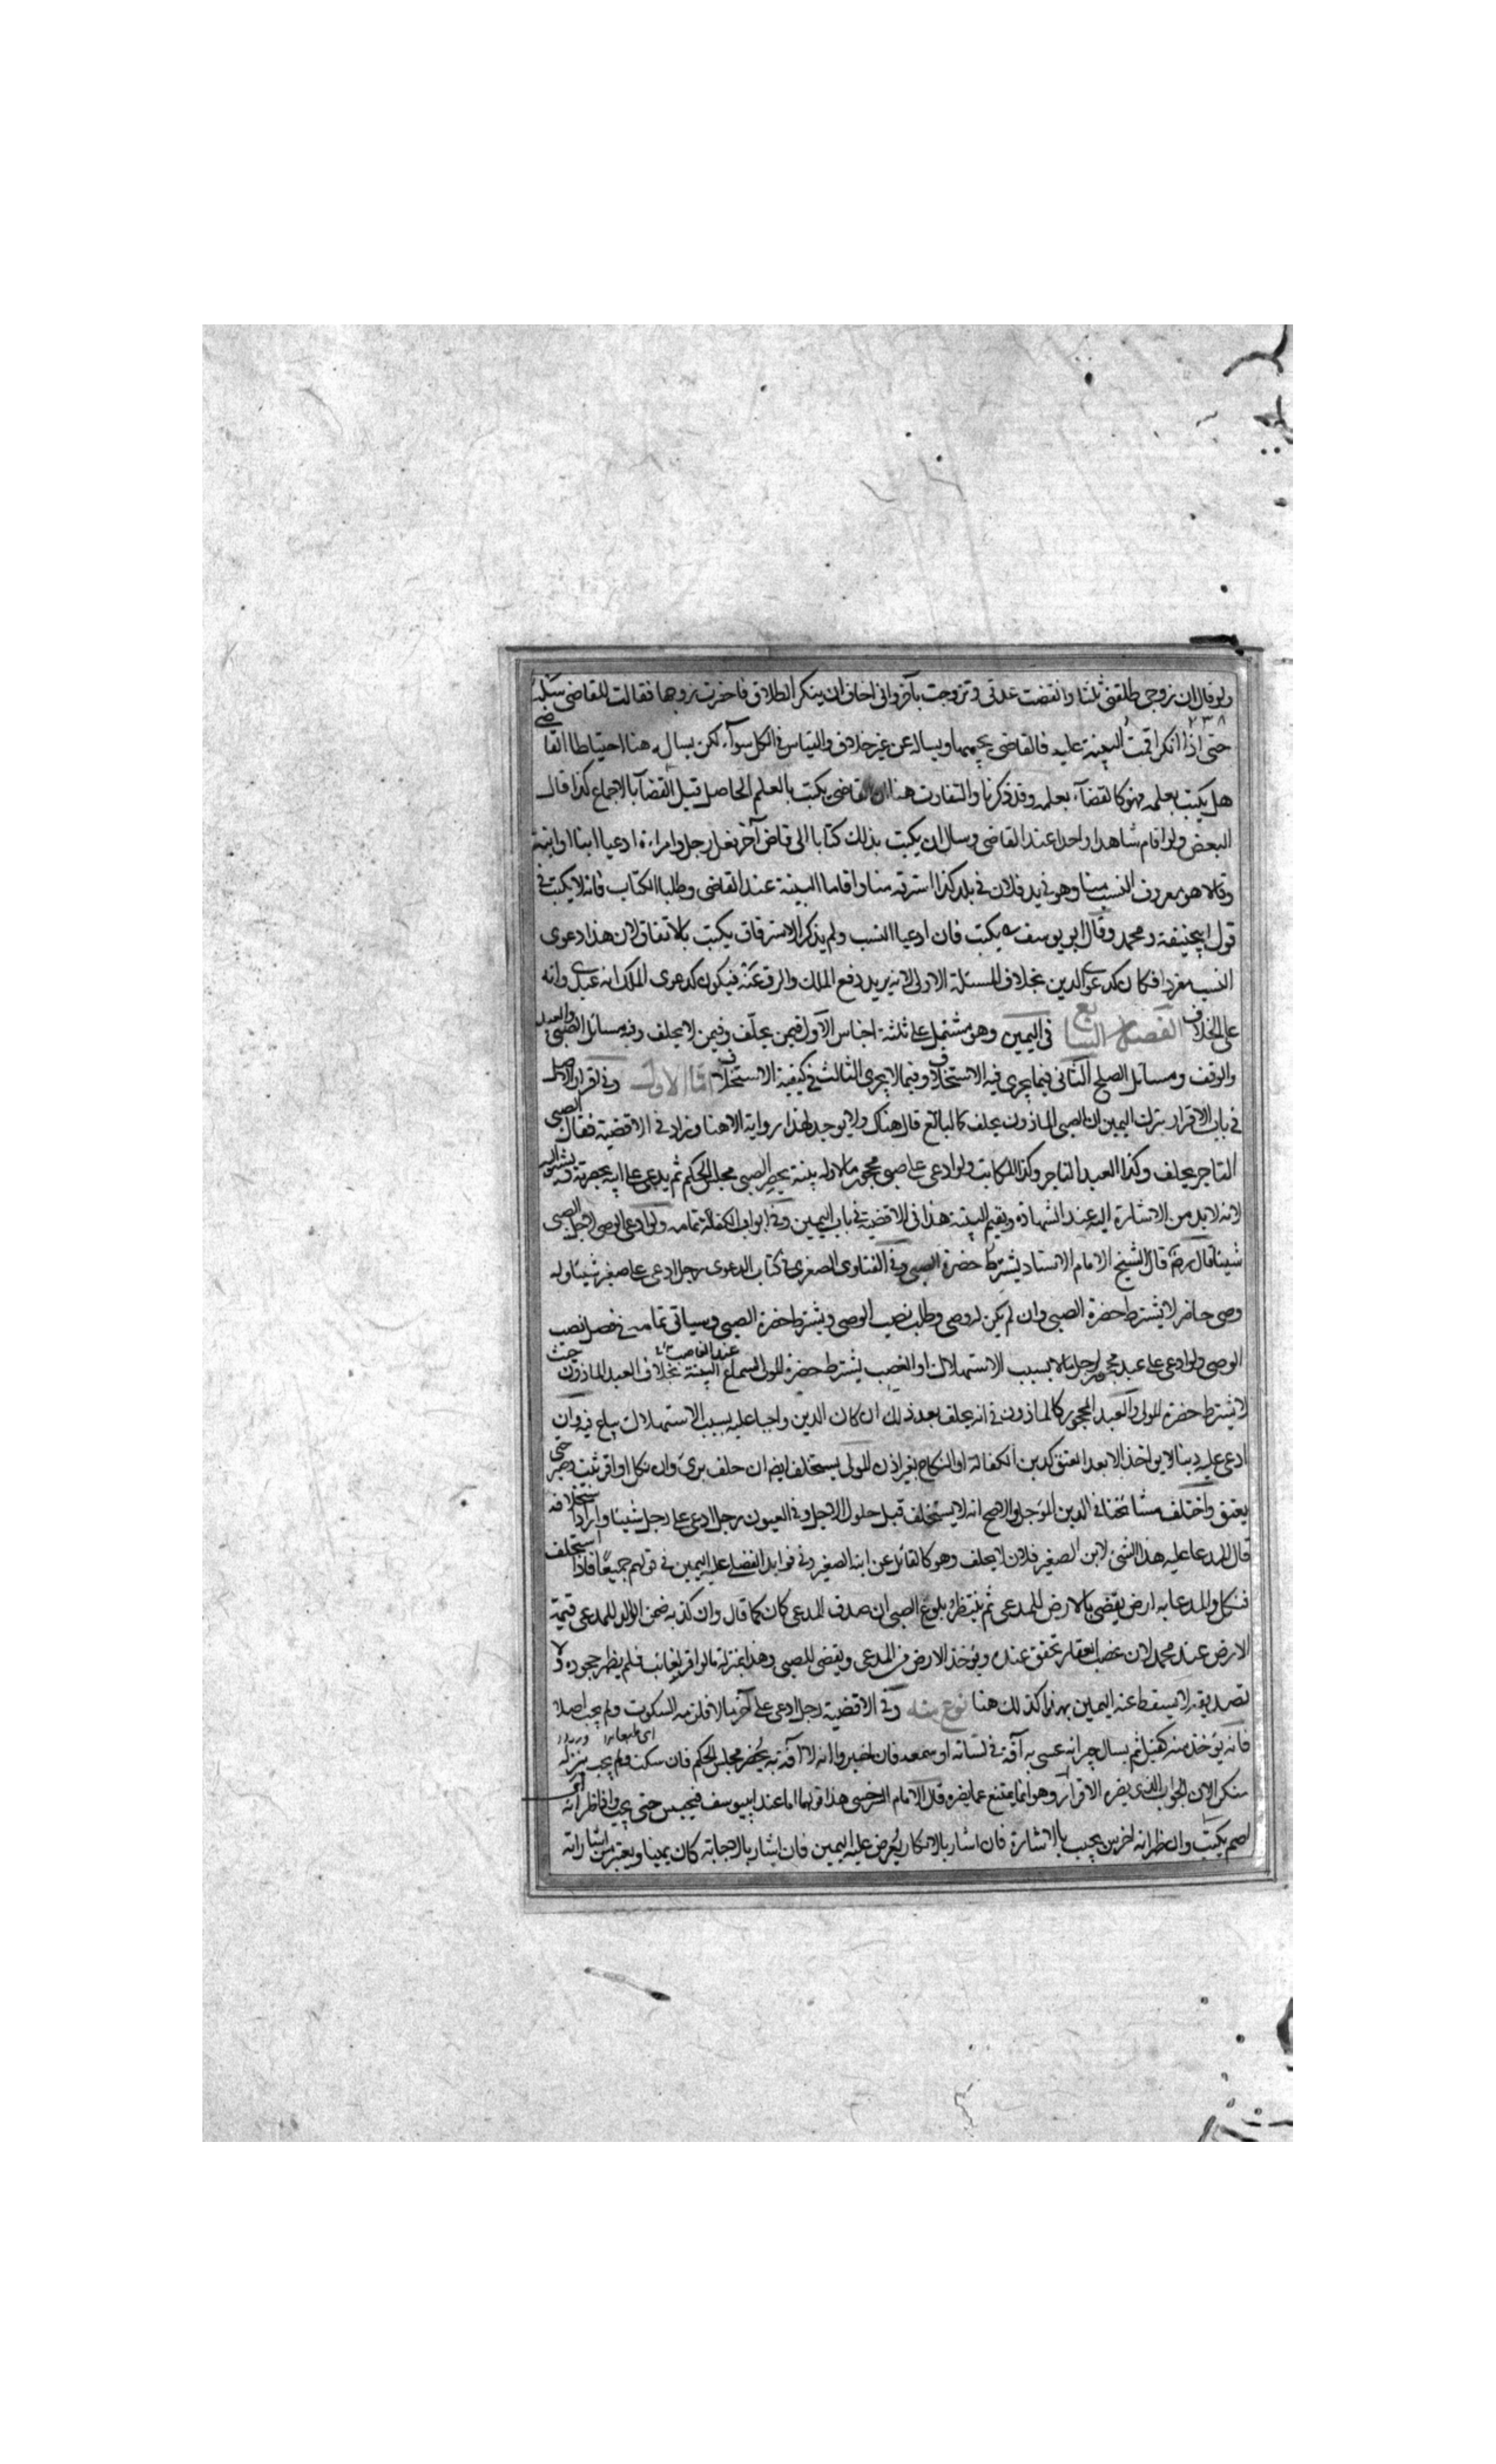 ولو قال ان زوجى طلقنى ثلثا وانقضت عدتى وتزوجت بآخر وانى اخاف ان ينكر الطلاق فاحضرت زوجها فقالت للقاضى سله
٢٣٨
حتى اذا انكر اقمت البينة عليه فالقاضى يجمعهما ويساله عن غير خلاف والقياس فى الكل سوآء لكن يسال هنا احتياطا القاضى
هل يكتب بعلمه فهو كالقضآء بعلمه وقد ذكرنا والتفاوت هنا ان القاضى يكتب بالعلم الحاصل قبل القضآ بالاجماع كذا قال
البعض ولو اقام شاهدا واحدا عند القاضى وسال ان يكتب بذلك كتابا الى قاض آخر فعل رجل وامراءة ادعيا ابنا او ابنة
وقالا هو معروف النسب منا وهو فى يد فلان فى بلد كذا استرقه منا واقاما البينة عند القاضى وطلبا الكتاب فانه لا يكتب فى
قول ابيحنيفة ومحمد وقال ابو يوسف يكتب فان ادعيا النسب ولم يذكر الاسترقاق يكتب بالاتفاق لان هذا دعوى
النسب مفردا فكان كدعوى الدين بخلاف المسئلة الاولى لانه يريد دفع الملك والرق عنه فيكون كدعوى الملك انه عبدى وانه
على الخلاف الفصل السابع فى اليمين وهو مشتمل على ثلثة اجناس الاول فيمن يحلف وفيمن لا يحلف وفيه مسائل الصبى والعبد
والوقف ومسائل الصلح الثانى فيما يجرى فيه الاستحلاف وفيما لا يجرى الثالث فى كيفية الاستحلاف اما الاول وفى اقرار الاصل
فى باب الاقرار بترك اليمين ان الصبى الماذون يحلف كالبالغ قال هناك ولا يوجد لهذا رواية الا هنا وزاد فى الاقضية فقال الصبى
التاجر يحلف وكذا العبد التاجر وكذا المكاتب ولو ادعى على صبى محجور مالا وله بينة يحضر الصبى مجلس الحكم ثم يدعى على ابيه بحضرته
لانه لا بد من الاشارة اليه عند الشهادة ويقيم البينة هذا فى الاقضية فى باب اليمين وفى ابواب الكفالة تمامه ولو ادعى الوصى لاجل الصبى
شيئا قال رضى قال الشيخ الامام الاستاد يشترط حضرة الصبى وفى الفتاوى الصغرى فى كتاب الدعوى رجل ادعى على صغير شيئا وله
وصى حاضر لا يشترط حضرة الصبى وان لم يكن له وصى وطلب نصيب الوصى ويشترط حضرة الصبى وسياتى تمامه فى فصل نصب
الوصى ولو ادعى على عبد محجور لرجل مالا بسبب الاستهلاك او الغصب يشترط حضرة المولى لسماع البينة بخلاف العبد الماذون حيث
لا يشترط حضرة المولى والعبد المحجور كالماذون فى انه يحلف بعد ذلك ان كان الدين واجبا عليه بسبب الاستهلاك يباع فيه وان
ادعى عليه دينا لا يواخذ الا بعد العتق كدين الكفالة او النكاح بغير اذن المولى يستحلف ايضا ان حلف برئ وان نكل او اقر ثبت ويصبر حتى
يعتق واختلف مشائخنا فى الدين المؤجل والاصح انه لا يستحلف قبل حلول الاجل وفى العيون رجل ادعى على رجل شيئا واراد استحلافه
قال المدعا عليه هذا الشئ لابن الصغير فلان لا يحلف وهو كالقائل عن ابنه الصغير وفى فوايد الفضلى عليه اليمين فى قولهم جميعا فاذا استحلف
فنكل والمدعا به ارض يقضى بالارض للمدعى ثم ينتظر بلوغ الصبى ان صدق المدعى كان كما قال وان كذبه ضمن الوالد للمدعى قيمة
الارض عند محمد لان غصب العقار تحقق عنده ويؤخذ الارض من المدعى ويقضى للصبى وهذا بمنزلة ما لو اقر لغائب فلم يظهر جحوده ولا
تصديقه لا يسقط عنه اليمين بهذا كذلك هنا نوع منه وفى الاقضية رجل ادعى على آخر مالا فلزمه السكوت ولم يجب اصلا
فانه يؤخذ منه كفيل ثم يسال جيرانه عسى به آفة فى لسانه او سمعه فان اخبروا انه لا آفة به يحضر مجلس الحكم فان سكت ولم يجب ينزله
منكر الان الجواب الذى يضره الاقرار وهو انما يمتنع عما يضره قال الامام السرخسى هذا قولهما اما عند ابيوسف فيحبس حتى يجيب فان ظهر انه
اصم يكتب وان ظهر انه اخرس يجيب بالاشارة فان اشار بالانكار يعرض عليه اليمين فان اشار بالاجابة كان يمينا ويعتبر من اشاراته